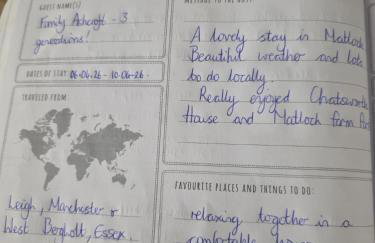 GUEST NAME(S)
Family Ashcroft - 3
generations!
DATES OF STAY 06.04.26 - 10.04.26.
TRAVELED FROM
Leigh, Manchester &
West Bergholt, Essex.
MESSAGE TO THE HOST
A lovely stay in Matlock
Beautiful weather and lots
to do locally.
Really enjoyed Chatsworth
House and Matlock farm Park
FAVOURITE PLACES AND THINGS TO DO:
relaxing together in a
comfortable